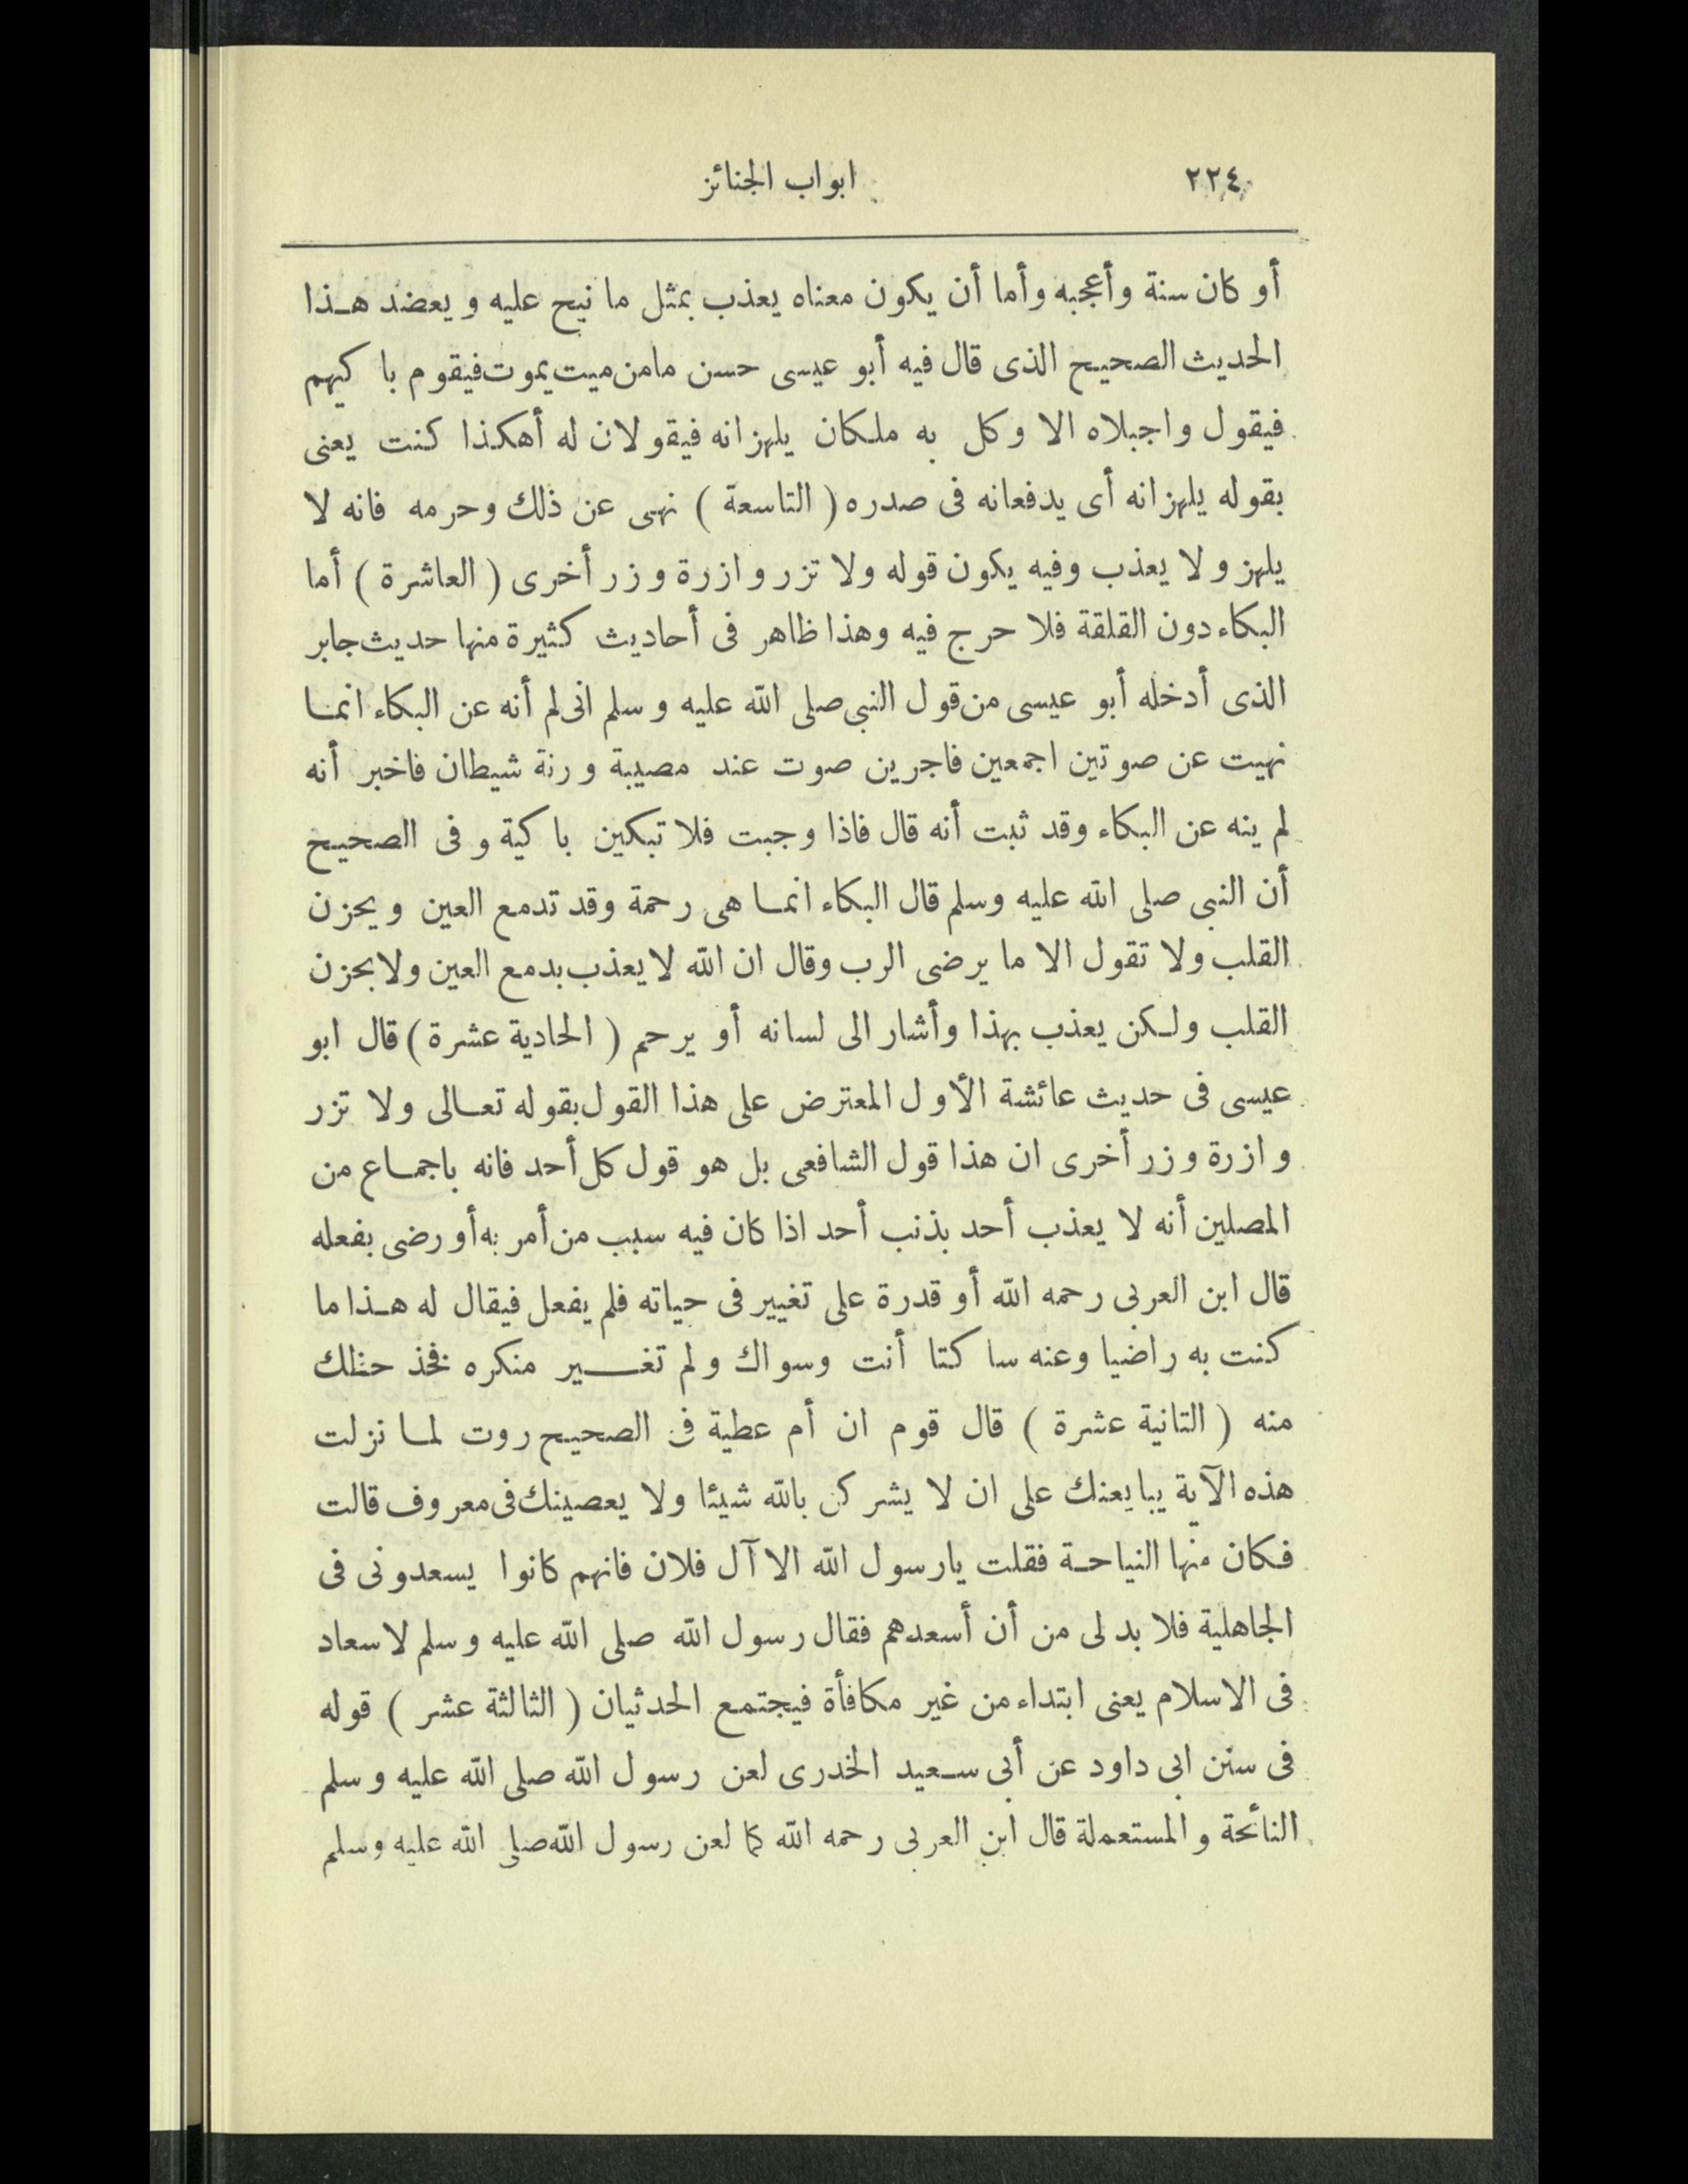 ٢٢٤ ابواب الجنائز
أو كان سنة وأعجبه وأما أن يكون معناه يعذب بمثل ما نيح عليه ويعضد هـذا
الحديث الصحيح الذى قال فيه أبو عيسى حسن مامن ميت يموت فيقوم با كيهم
فيقول واجبلاه الا وكل به ملكان يلهزانه فيقولان له أهكذا كنت يعنى
بقوله يلهزانه أى يدفعانه فى صدره ( التاسعة ) نهى عن ذلك وحرمه فانه لا
يلهز ولا يعذب وفيه يكون قوله ولا تزر وازرة وزر أخرى ( العاشرة ) أما
البكاء دون القلقة فلا حرج فيه وهذا ظاهر فى أحاديث كثيرة منها حديث جابر
الذى أدخله أبو عيسى من قول النبى صلى الله عليه وسلم انى لم أنه عن البكاء انمـا
نهيت عن صوتين اجمعين فاجرين صوت عند مصيبة ورنة شيطان فاخبر أنه
لم ينه عن البكاء وقد ثبت أنه قال فاذا وجبت فلا تبكين با كية وفى الصحيح
أن النبى صلى الله عليه وسلم قال البكاء انمـا هى رحمة وقد تدمع العين ويحزن
القلب ولا تقول الا ما يرضى الرب وقال ان الله لا يعذب بدمع العين ولا بحزن
القلب ولـكن يعذب بهذا وأشار الى لسانه أو يرحم ( الحادية عشرة ) قال ابو
عيسى فى حديث عائشة الأول المعترض على هذا القول بقوله تعـالى ولا تزر
وازرة وزر أخرى ان هذا قول الشافعى بل هو قول كل أحد فانه باجمـاع من
المصلين أنه لا يعذب أحد بذنب أحد اذا كان فيه سبب من أمر به أو رضى بفعله
قال ابن العربى رحمه الله أو قدرة على تغيير فى حياته فلم يفعل فيقال له هـذا ما
كنت به راضيا وعنه سا كتا أنت وسواك ولم تغـــير منكره فخذ حظك
منه ( الثانية عشرة ) قال قوم ان أم عطية فى الصحيح روت لمـا نزلت
هذه الآية يبايعنك على ان لا يشركن بالله شيئا ولا يعصينك فى معروف قالت
فـكان منها النياحـة فقلت يارسول الله الا آل فلان فانهم كانوا يسعدونى فى
الجاهلية فلا بد لى من أن أسعدهم فقال رسول الله صلى الله عليه وسلم لا سعاد
فى الاسلام يعنى ابتداء من غير مكافأة فيجتمع الحدثيان ( الثالثة عشر ) قوله
فى سنن ابى داود عن أبى سـعيد الخدرى لعن رسول الله صلى الله عليه وسلم
النائحة والمستعملة قال ابن العربى رحمه الله كما لعن رسول الله صلى الله عليه وسلم